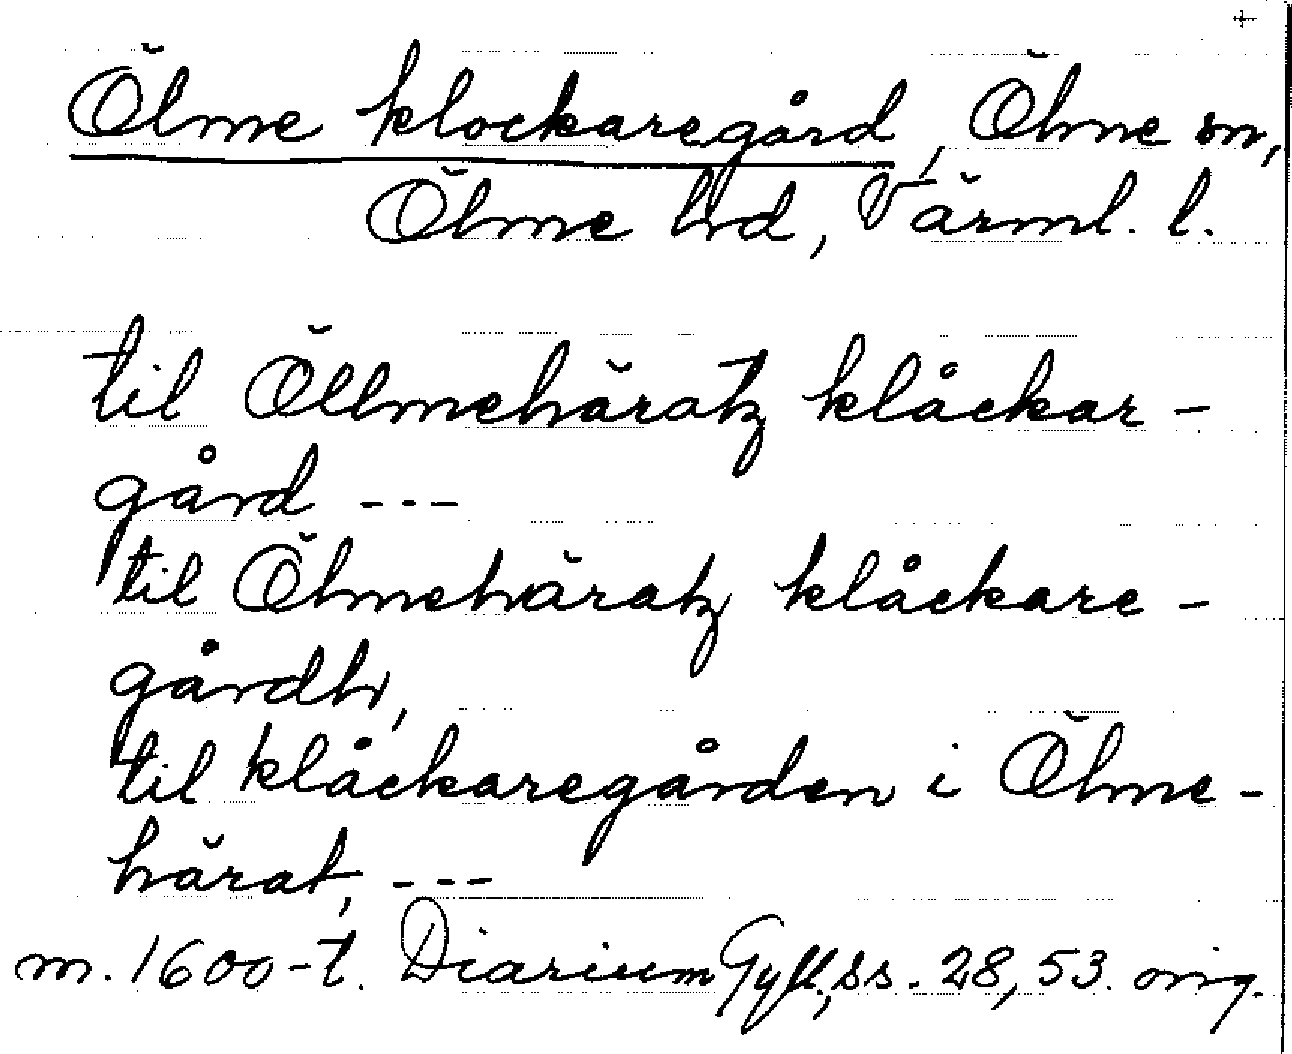 Ölme klockaregård, Ölme sn,
Ölme hd, Värml. l.
til Öllmehäratz klåckar-
gård ---
til Ölmehäratz klåckare-
gårdh,
til klåckaregården i Ölme-
härat, ---
m. 1600-t. Diarium Gyll., ss. 28, 53. orig.